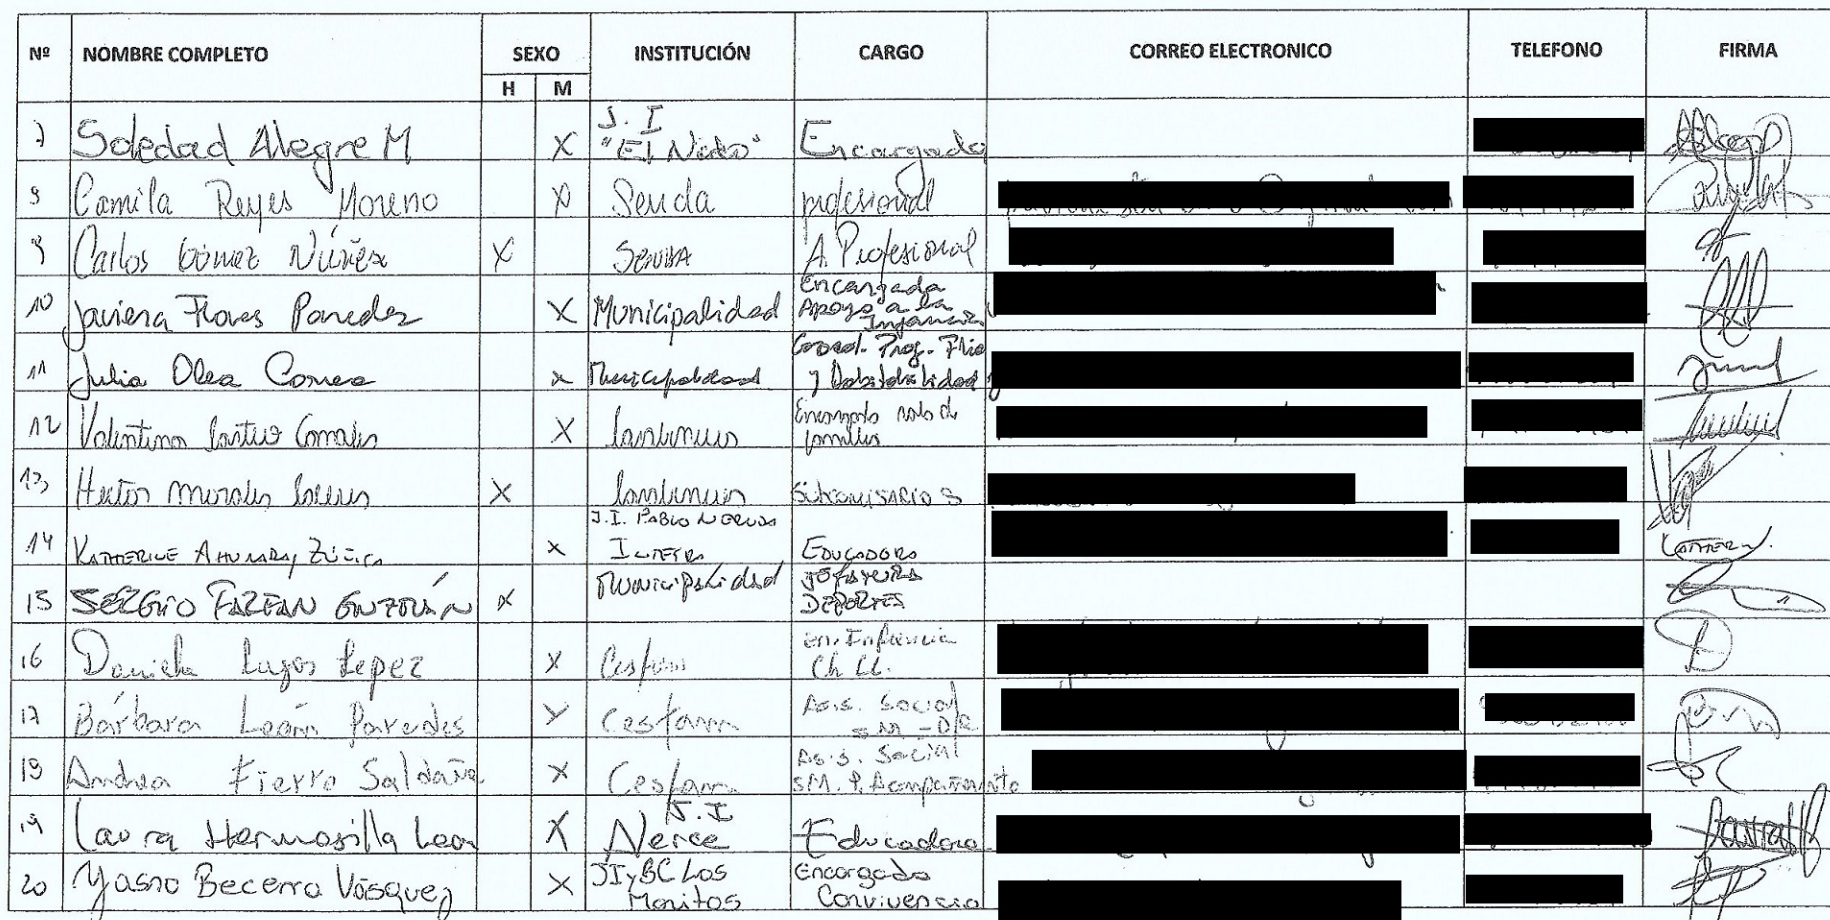 Nº NOMBRE COMPLETO SEXO INSTITUCIÓN CARGO CORREO ELECTRONICO TELEFONO FIRMA
H M
7 Soledad Alegre M X J. I "El Nido" Encargada
8 Camila Reyes Moreno X Senda profesional
9 Carlos Gómez Núñez X SENDA A. Profesional
10 Javiera Flores Paredes X Municipalidad Encargada
Apoyo a la
Infancia
11 Julia Olea Correa X Municipalidad Coord. Prog. Flia
y Habitabilidad
12 Valentina Castro X Encargada sala de
familia
13 Hector Morales X Subcomisario S
14 KATHERINE AHUMADA ZÚÑIGA X J.I. PABLO NERUDA
EDUCADORA
15 SERGIO GUZMÁN X Municipalidad JEFATURA
DEPORTES
16 Daniela Lagos Lopez X Cesfam en. Infancia
Ch. CC.
17 Bárbara León Paredes X Cesfam Asis. Social
SM - DIR
18 Andrea Fierro Saldaña X Cesfam Asis. Social
SM. P. Acompañamiento
19 Laura Hermosilla Leon X J. I
Nerce Educadora
20 Yasna Becerra Vásquez X JI y BC Los
Monitos Encargada
Convivencia